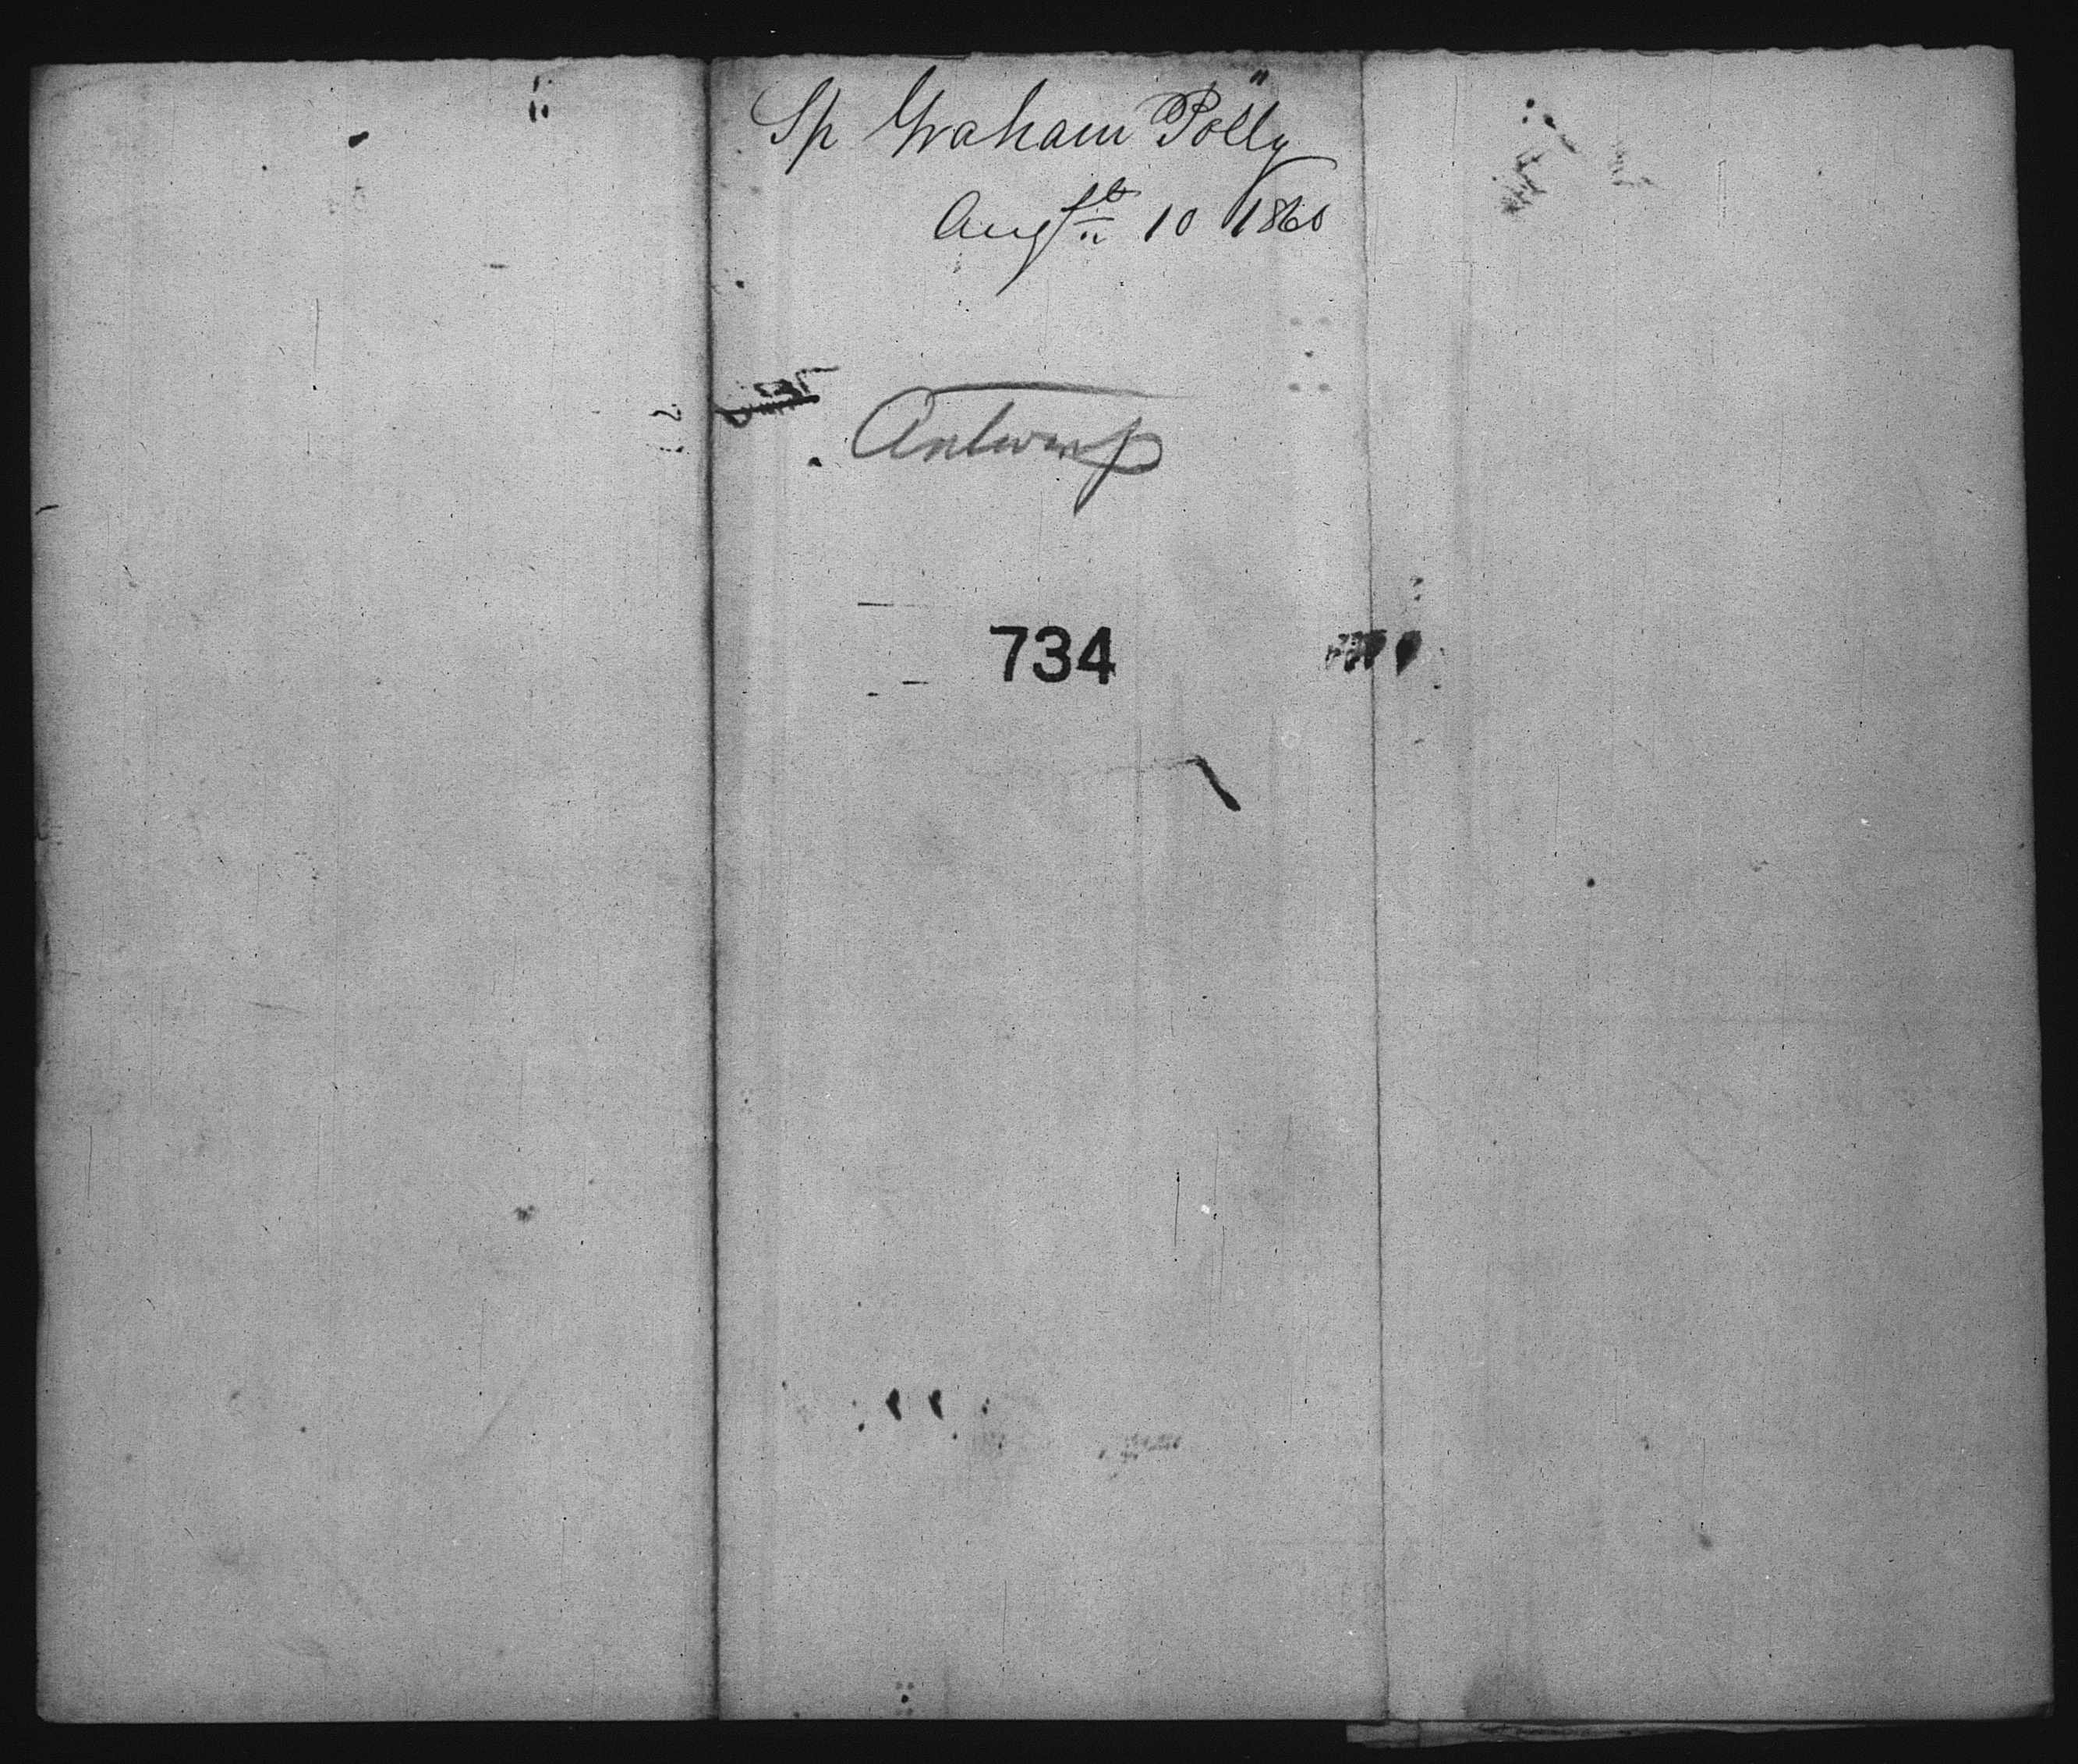 Sp Graham Polly
Augst 10 1860
Antwerp
734